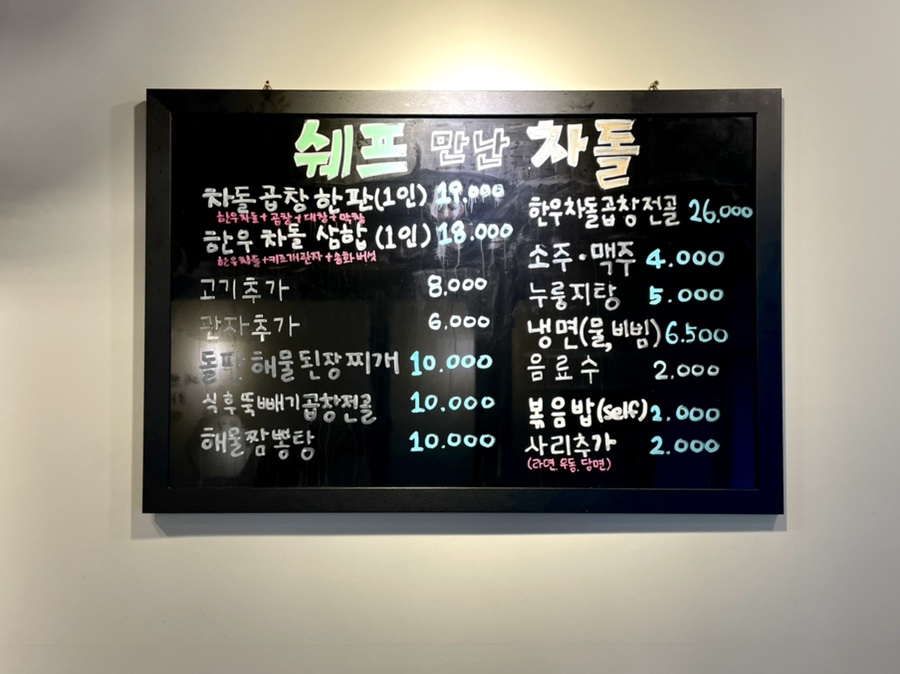 쉐프 만난 차돌
차돌곱창 한판(1인) 19.000
한우차돌+곱창+대창+막창
한우 차돌 삼합 (1인) 18.000
한우차돌+키조개관자+송화버섯
고기추가 8,000
관자추가 6,000
돌판 해물된장찌개 10.000
식후뚝빼기곱창전골 10.000
해물짬뽕탕 10.000
한우차돌곱창전골 26,000
소주·맥주 4.000
누룽지탕 5.000
냉면(물,비빔) 6.500
음료수 2.000
볶음밥(self) 2.000
사리추가 2.000
(라면.우동.당면)